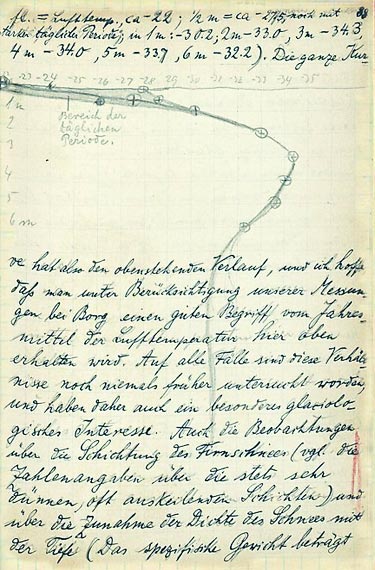 fl. = Lufttemp., ca -22; ½ m = ca -27,5, noch mit 88
starker täglicher Periode, in 1 m: -30.2, 2m -33.0, 3m -34.3,
4m -34.0, 5m -33.7, 6m -32.2). Die ganze Kur-
-23 -24 -25 -26 -27 -28 -29 -30 -31 -32 -33 -34 -35
1m
Bereich der
täglichen
Periode.
2
3
4
5
6 m
ve hat also den obenstehenden Verlauf, und ich hoffe
daß man unter Berücksichtigung unserer Messun-
gen bei Borg einen guten Begriff vom Jahres-
mittel der Lufttemperatur hier oben
erhalten wird. Auf alle Fälle sind diese Verhält-
nisse noch niemals früher untersucht worden,
und haben daher auch ein besonderes glaziolo-
gisches Interesse. Auch die Beobachtungen
über die Schichtung des Firnschnees (vgl. die
Zahlenangaben über die stets sehr
dünnen, oft auskeilenden Schichten) und
über die Zunahme der Dichte des Schnees mit
der Tiefe (Das spezifische Gewicht beträgt